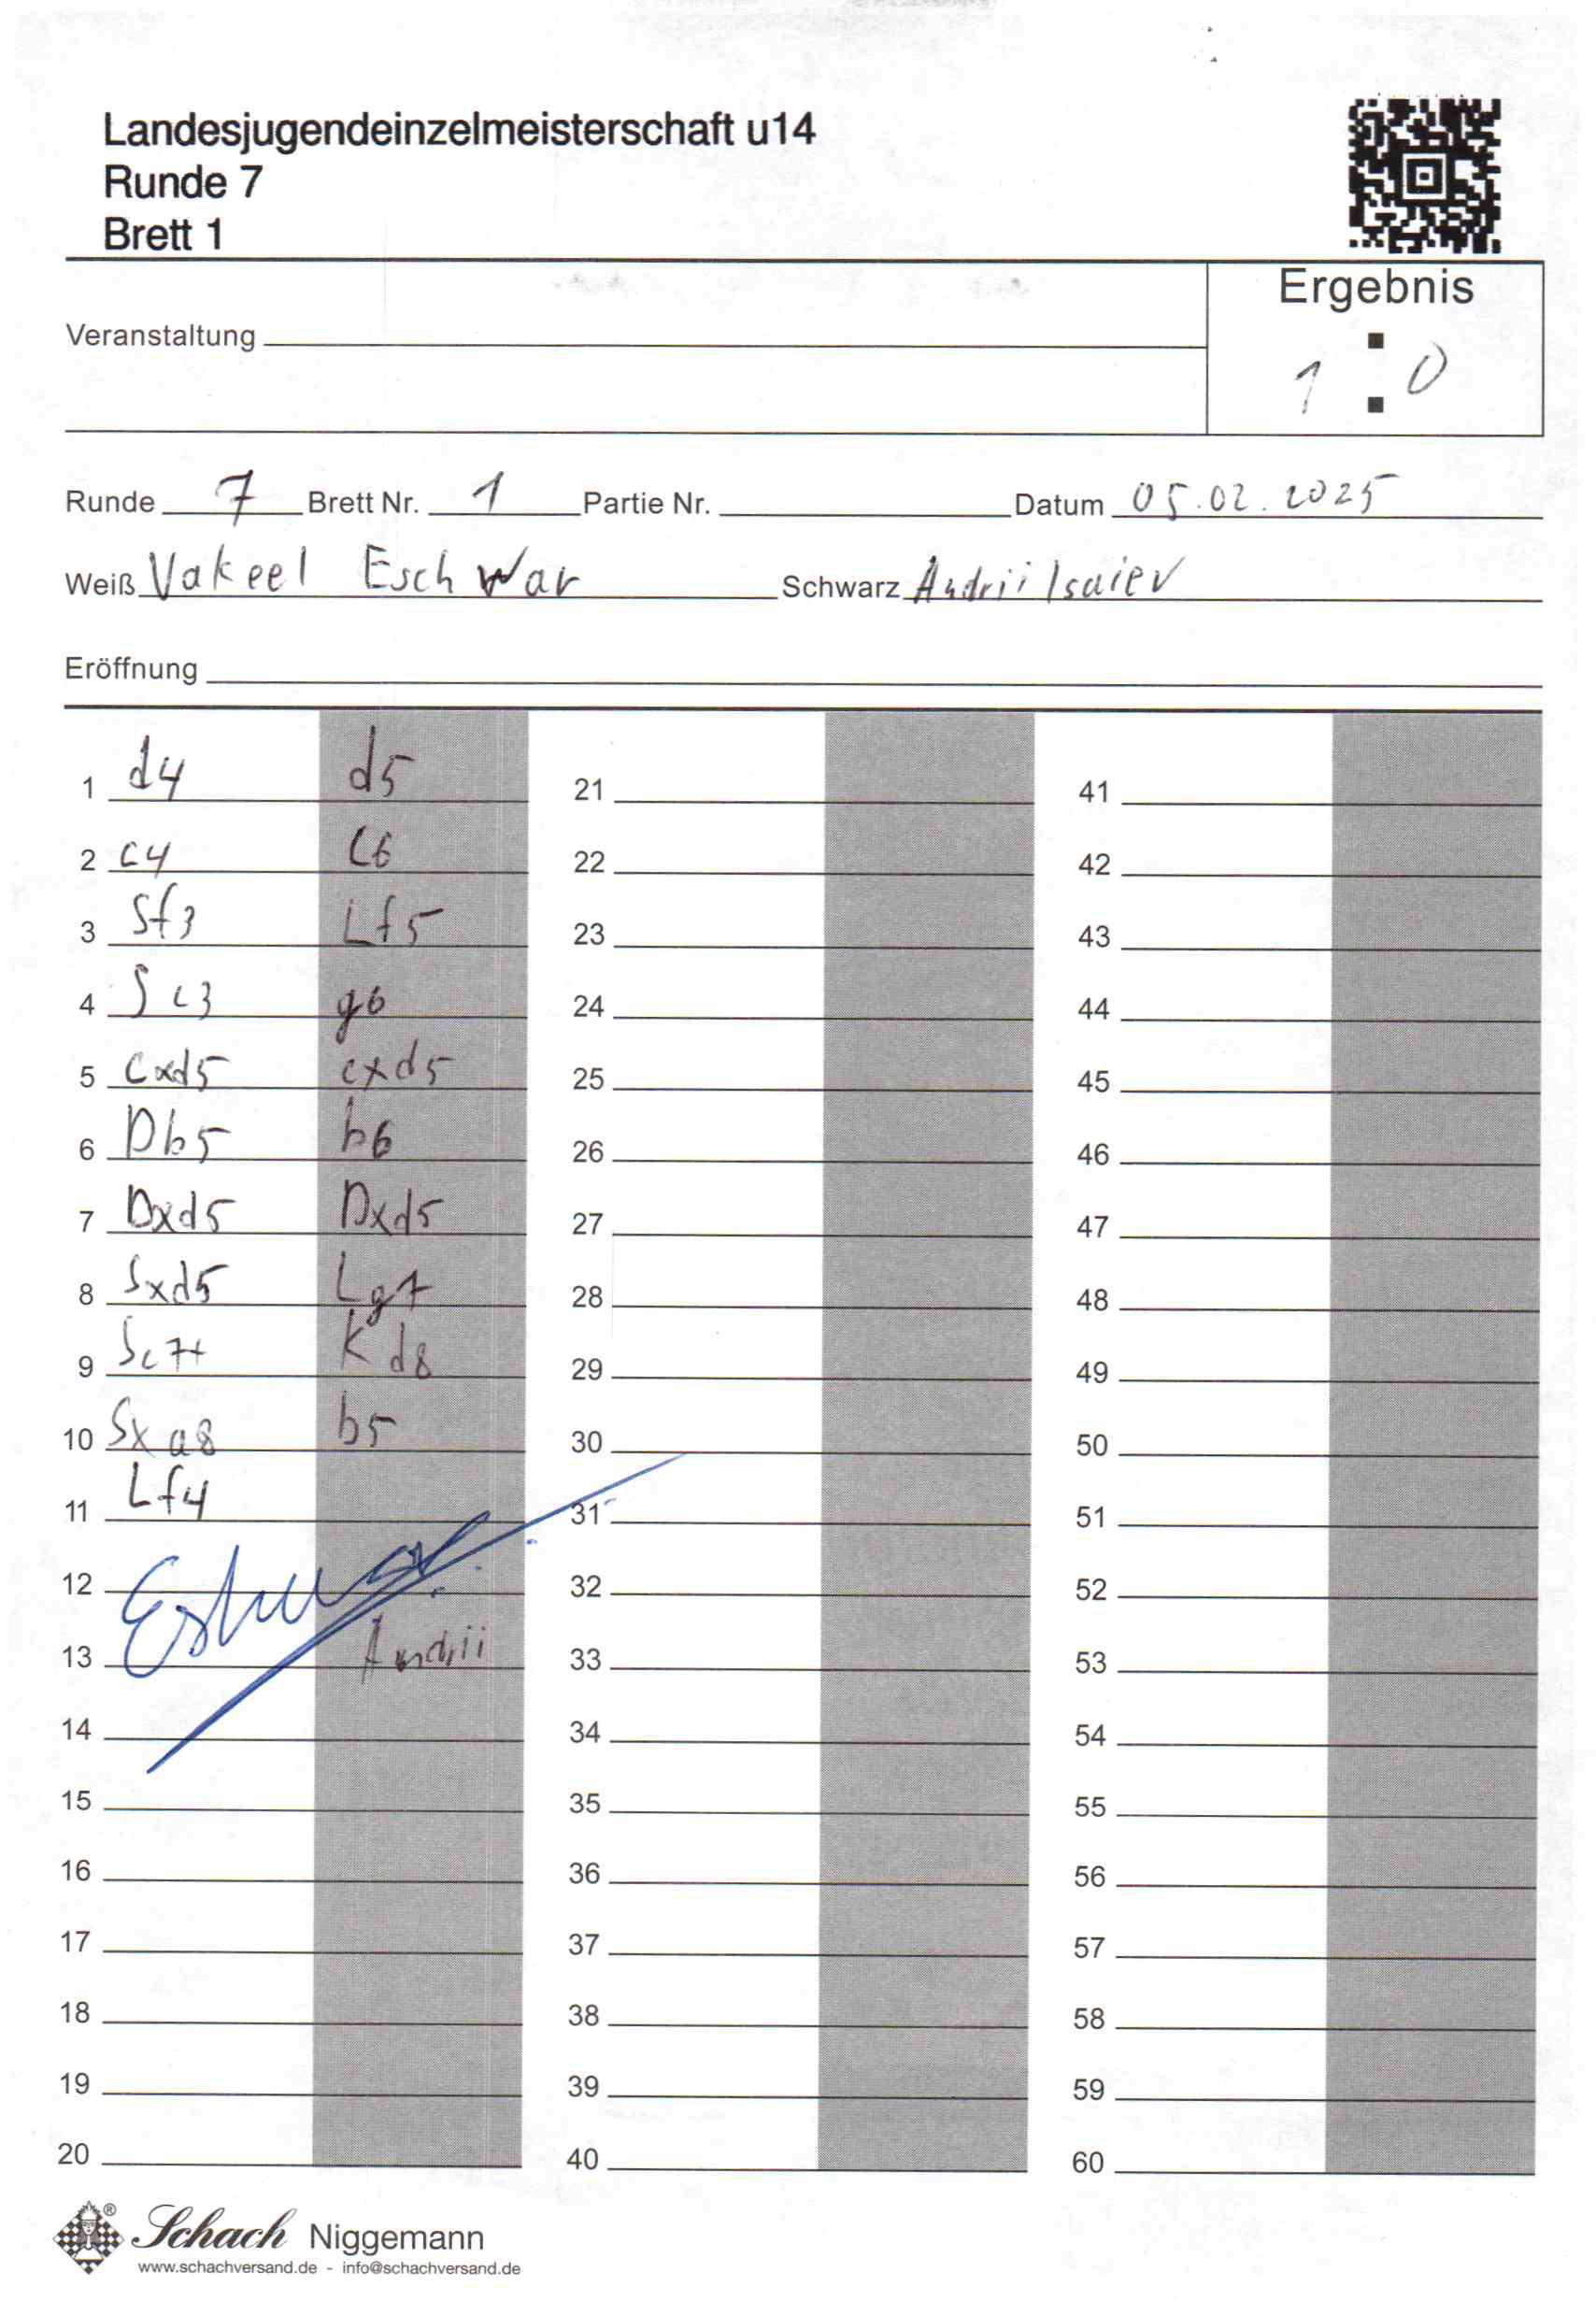 Landesjugendeinzelmeisterschaft u14
Runde 7
Brett 1
Ergebnis
Veranstaltung
1 : 0
Runde 7 Brett Nr. 1 Partie Nr. Datum 05.02.2025
Weiß Vakeel Eschwar Schwarz Andrii Isaiev
Eröffnung
1 d4 d5 21 41
2 c4 c6 22 42
3 Sf3 Lf5 23 43
4 Sc3 g6 24 44
5 cxd5 cxd5 25 45
6 Db5 b6 26 46
7 Dxd5 Dxd5 27 47
8 Sxd5 Lg7 28 48
9 Sc7+ Kd8 29 49
10 Sxa8 b5 30 50
11 Lf4 31 51
12 32 52
13 Andrii 33 53
14 34 54
15 35 55
16 36 56
17 37 57
18 38 58
19 39 59
20 40 60
Schach Niggemann
www.schachversand.de - info@schachversand.de